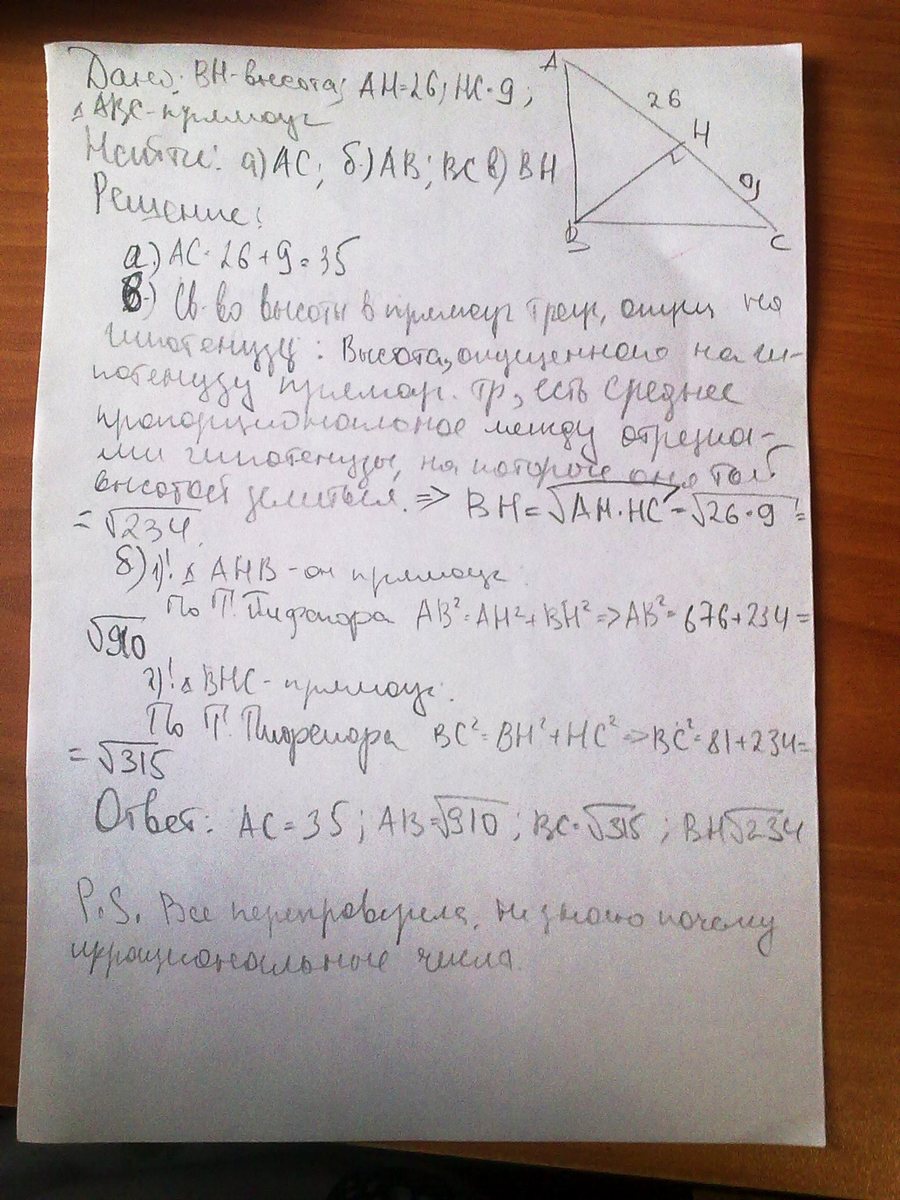 Дано: BH-высота; AH=26; HC=9;
△ABC-прямоуг
Найти: а)AC; б.)AB; BC в) BH
Решение:
A
26
H
9
B
C
а.) AC=26+9=35
в.) Св-во высоты в прямоуг треуг, опущ на
гипотенузу: Высота, опущенного на ги-
потенузу прямоуг. тр, есть среднее
пропорциональное между отрезка-
ми гипотенузы, на которое она той
высотой делиться. => BH=√AH·HC=√26·9=
=√234.
б)1)! △AHB-он прямоуг
По Т. Пифагора AB²=AH²+BH²=>AB²=676+234=
√910
2)! △BHC-прямоуг.
По Т. Пифагора BC²=BH²+HC²=>BC²=81+234=
=√315
Ответ: AC=35; AB=√910; BC=√315; BH√234
P.S. Все перепроверела, не знаю почему
иррациональные числа.